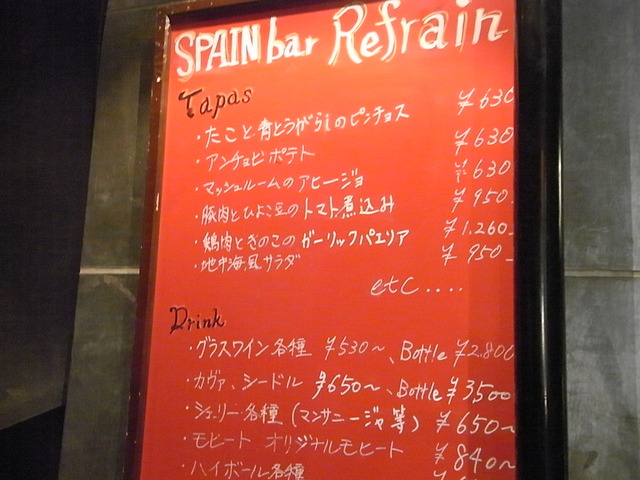 SPAIN bar Refrain
Tapas
・たこと青とうがらしのピンチョス ¥630
・アンチョビポテト ¥630
・マッシュルームのアヒージョ ¥630
・豚肉とひよこ豆のトマト煮込み ¥950
・鶏肉ときのこのガーリックパエリア ¥1,260-
・地中海風サラダ ¥950-
etc....
Drink
・グラスワイン各種 ¥530〜、Bottle ¥2,800
・カヴァ、シードル ¥650〜、Bottle ¥3,500
・シェリー各種(マンサニージャ等) ¥650〜
・モヒート オリジナルモヒート ¥840〜
・ハイボール各種